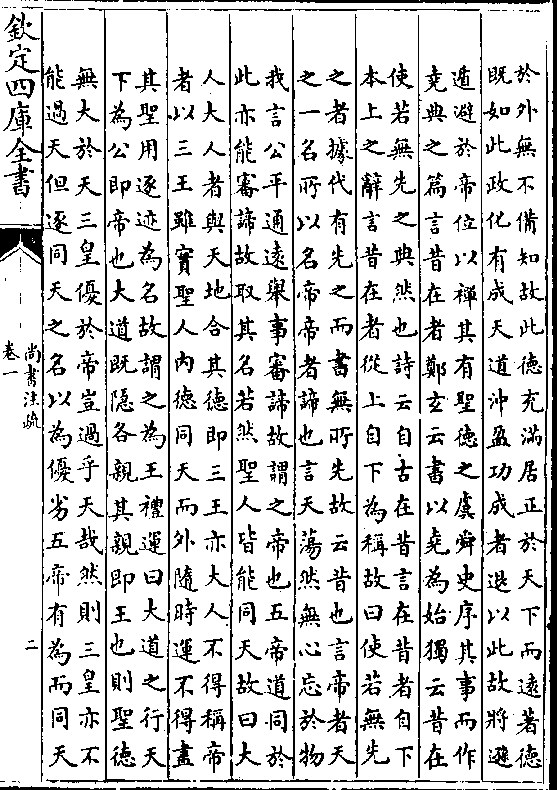 於外無不備知故此德充滿居正於天下而遠著德
既如此政化有成天道沖盈功成者退以此故將遜
遁避於帝位以禪其有聖德之虞舜史序其事而作
堯典之篇言昔在者鄭玄云書以堯為始獨云昔在
使若無先之典然也詩云自古在昔言在昔者自下
本上之辭言昔在者從上自下為稱故曰使若無先
之者據代有先之而書無所先故云昔也言帝者天
之一名所以名帝帝者諦也言天蕩然無心忘於物
我言公平通遠舉事審諦故謂之帝也五帝道同於
此亦能審諦故取其名若然聖人皆能同天故曰大
人大人者與天地合其德即三王亦大人不得稱帝
者以三王雖實聖人內德同天而外隨時運不得盡
其聖用逐迹為名故謂之為王禮運曰大道之行天
下為公即帝也大道既隱各親其親即王也則聖德
無大於天三皇優於帝豈過乎天哉然則三皇亦不
能過天但逐同天之名以為優劣五帝有為而同天
欽定四庫全書
尚書注疏
卷一
二